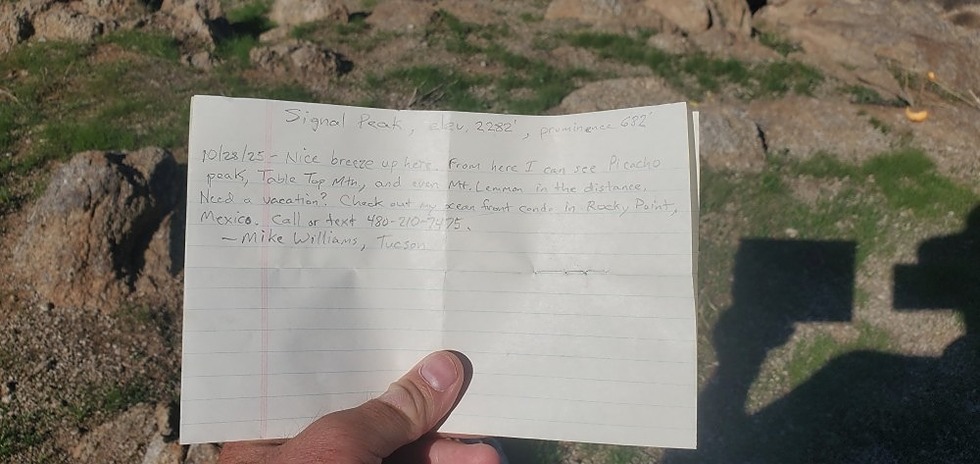 Signal Peak, elev. 2282', prominence 682'
10/28/25 - Nice breeze up here. From here I can see Picacho
peak, Table Top Mtn, and even Mt. Lemmon in the distance.
Need a vacation? Check out my ocean front condo in Rocky Point,
Mexico. Call or text 480-210-7475.
- Mike Williams, Tucson